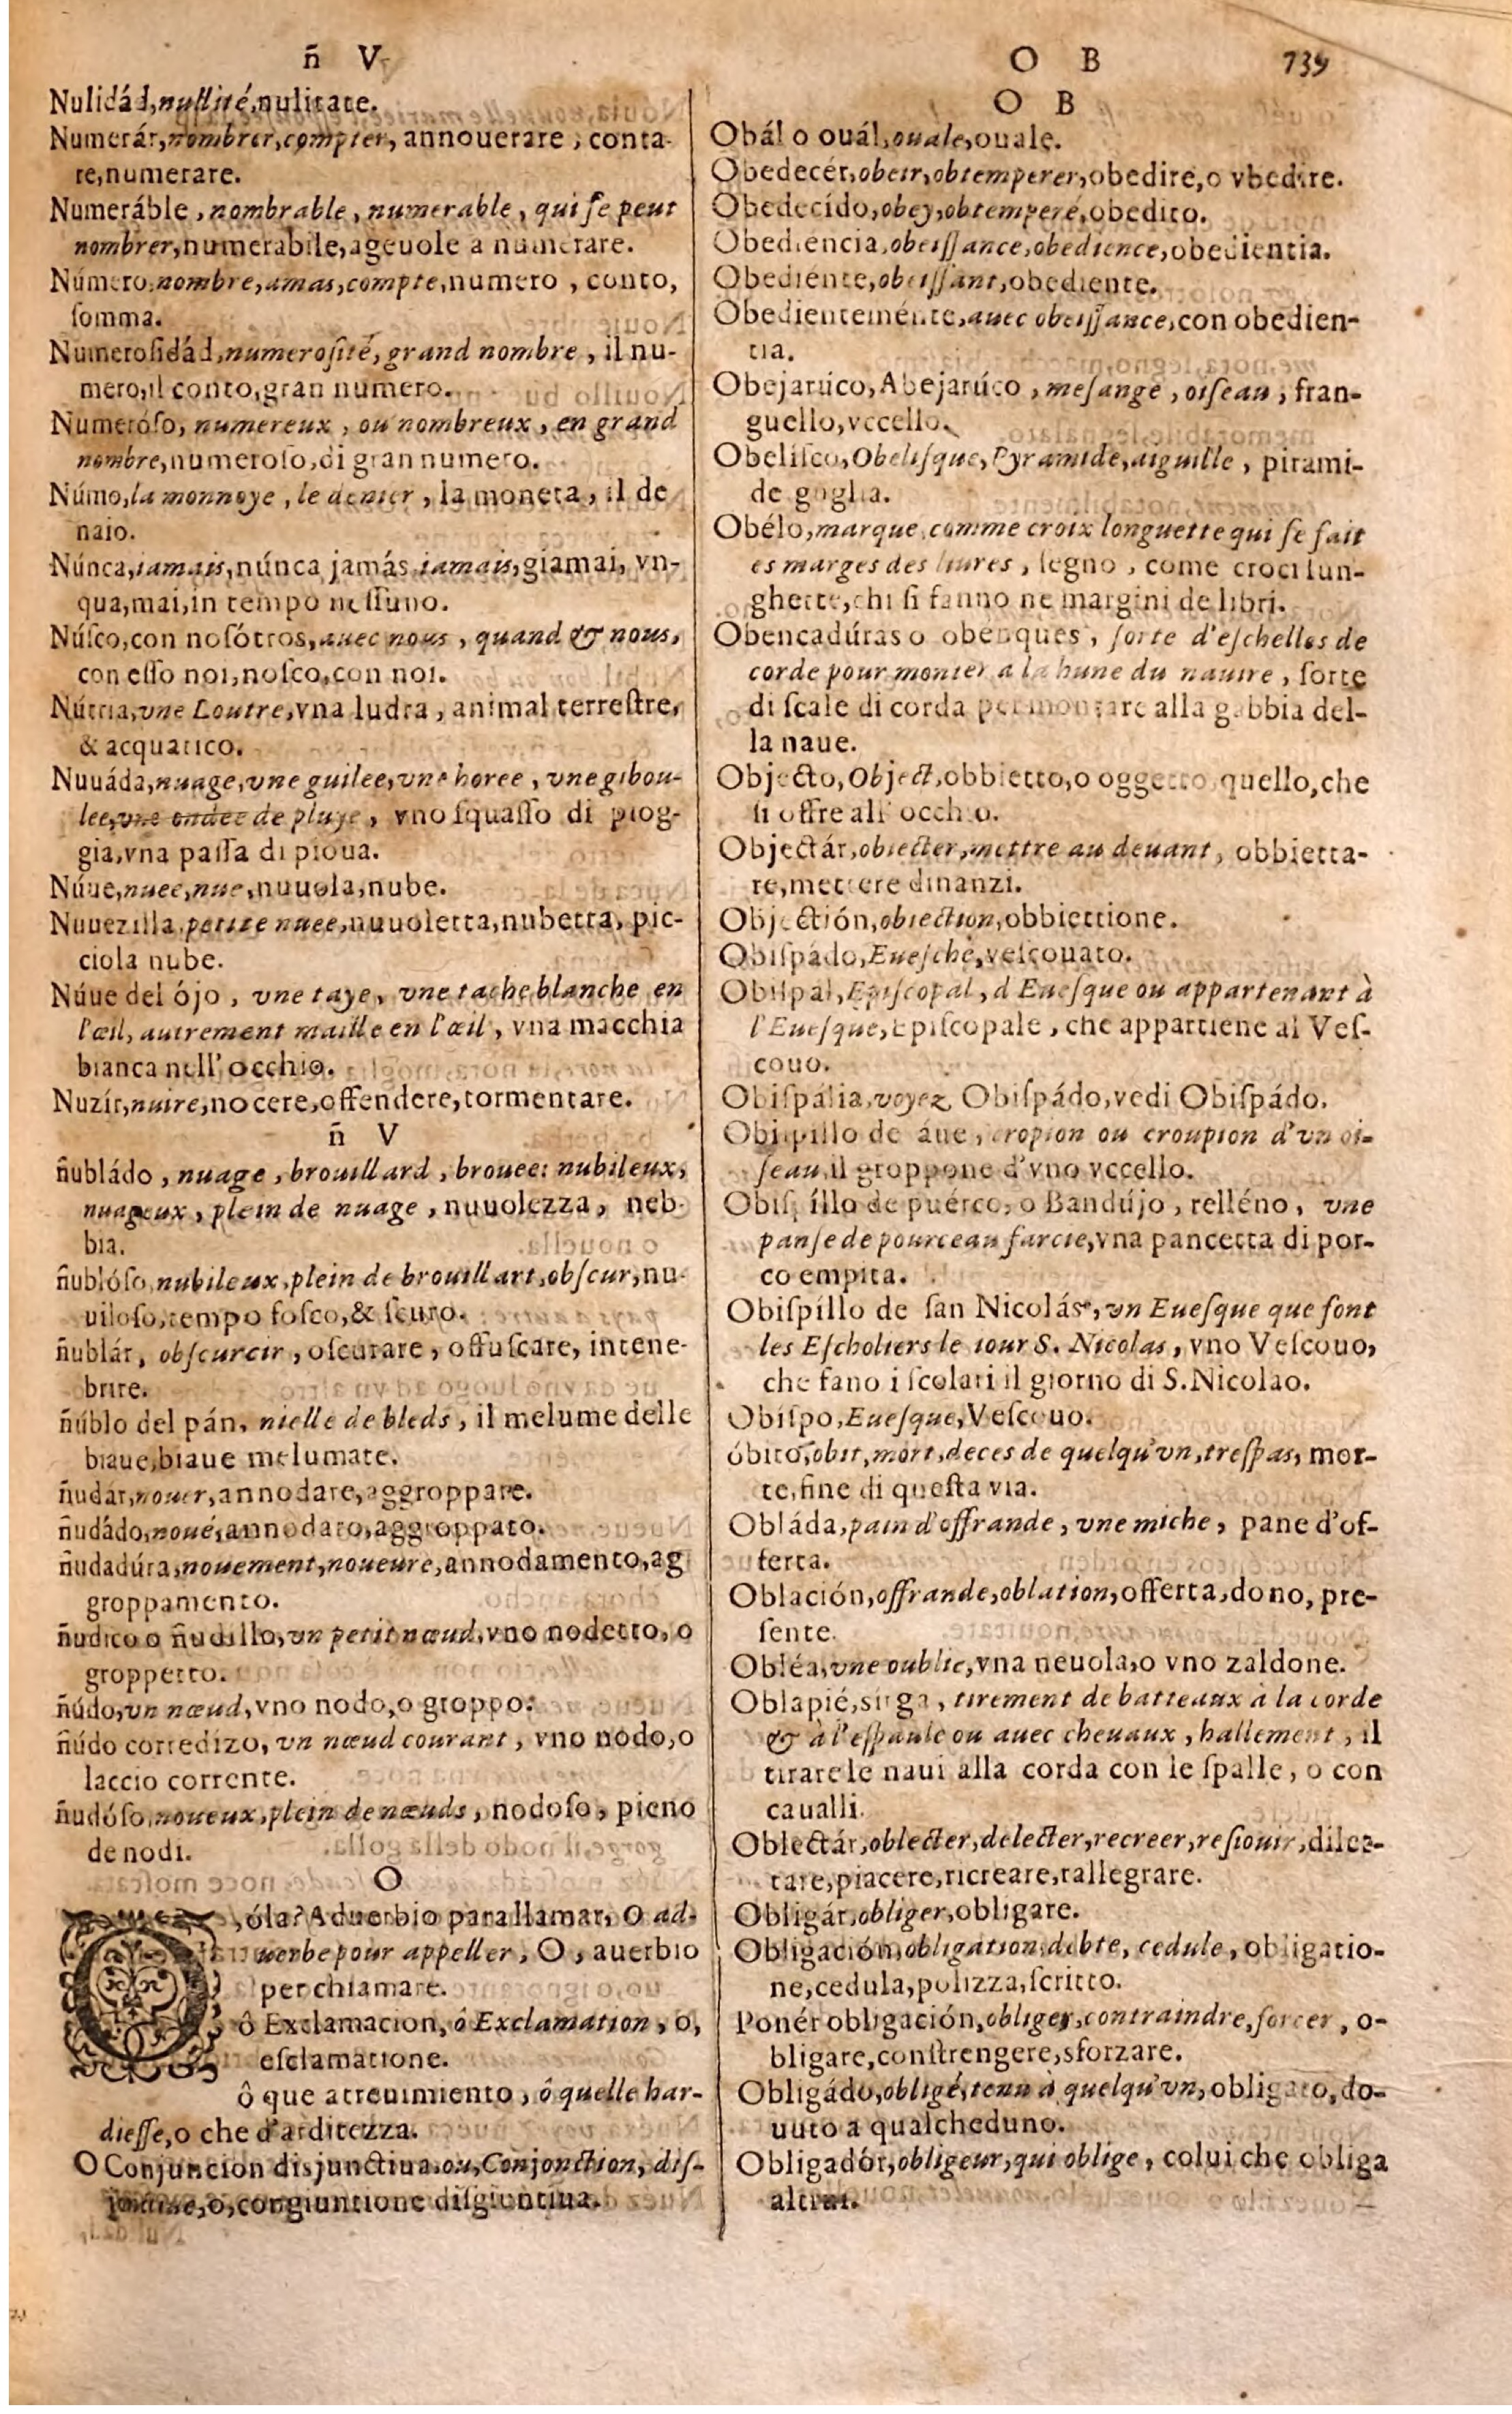 ñ V
Nulidád, nullité, nulitate.
Numerár, nombrer, compter, annouerare, conta-
re, numerare.
Numeráble, nombrable, numerable, qui ſe peut
nombrer, numerabile, ageuole a numerare.
Número, nombre, amas, compte, numero, conto,
ſomma.
Numeroſidád, numeroſité, grand nombre, il nu-
mero, il conto, gran numero.
Numeróſo, numereux, ou nombreux, en grand
nombre, numeroſo, di gran numero.
Númo, la monnoye, le denier, la moneta, il de
naio.
Núnca, iamais, núnca jamás iamais, giamai, vn-
qua, mai, in tempo neſſuno.
Núſco, con noſótros, auec nous, quand & nous,
con eſſo noi, noſco, con noi.
Nútria, vne Loutre, vna ludra, animal terreſtre,
& acquatico.
Nuuáda, nuage, vne guilee, vne horee, vne gibou-
lee, vne ondee de pluye, vno ſquaſſo di piog-
gia, vna paſſa di pioua.
Núue, nuee, nue, nuuola, nube.
Nuuezilla, petite nuee, nuuoletta, nubetta, pic-
ciola nube.
Núue del ójo, vne taye, vne tache blanche en
l'œil, autrement maille en l'œil, vna macchia
bianca nell' occhio.
Nuzír, nuire, nocere, offendere, tormentare.
ñ V
ñubládo, nuage, brouillard, brouee: nubileux,
nuageux, plein de nuage, nuuolezza, neb-
bia.
ñublóſo, nubileux, plein de brouillart, obſcur, nu-
uiloſo, tempo foſco, & ſcuro.
ñublár, obſcurcir, oſcurare, offuſcare, intene-
brire.
ñúblo del pán, nielle de bleds, il melume delle
biaue, biaue melumate.
ñudár, nouer, annodare, aggroppare.
ñudádo, noué, annodato, aggroppato.
ñudadúra, nouement, noueure, annodamento, ag
groppamento.
ñudico o ñudillo, vn petit nœud, vno nodetto, o
groppetto.
ñúdo, vn nœud, vno nodo, o groppo.
ñúdo corredizo, vn nœud courant, vno nodo, o
laccio corrente.
ñudóſo, noueux, plein de nœuds, nodoſo, pieno
de nodi.
O
O, óla? Aduerbio para llamar, O ad-
uerbe pour appeller, O, auerbio
per chiamare.
ô Exclamacion, ô Exclamation, o,
eſclamatione.
ô que atreuimiento, ô quelle har-
dieſſe, o che d'arditezza.
O Conjuncion disjunctiua, ou, Conjonction, diſ-
jonctiue, o, congiuntione diſgiuntiua.
O B 739
O B
Obál o ouál, ouale, ouale.
Obedecér, obeir, obtemperer, obedire, o vbedire.
Obedecído, obey, obtemperé, obedito.
Obediencia, obeiſſance, obedience, obedientia.
Obediente, obeiſſant, obediente.
Obedienteménte, auec obeiſſance, con obedien-
tia.
Obejarúco, Abejarúco, meſange, oiſeau, fran-
guello, vccello.
Obeliſco, Obeliſque, Pyramide, aiguille, pirami-
de goglia.
Obélo, marque comme croix longuette qui ſe fait
es marges des liures, ſegno, come croci lun-
ghette, chi ſi fanno ne margini de libri.
Obencadúras o obenques, ſorte d'eſchelles de
corde pour monter a la hune du nauire, ſorte
di ſcale di corda per montare alla gabbia del-
la naue.
Objecto, Object, obbietto, o oggetto quello, che
ſi offre all' occhio.
Objectár, obiecter, mettre au deuant, obbietta-
re, mettere dinanzi.
Objectión, obiection, obbiettione.
Obiſpádo, Eueſché, veſcouato.
Obiſpál, Epiſcopal, d'Eueſque ou appartenant à
l'Eueſque, Epiſcopale, che appartiene al Veſ-
couo.
Obiſpália, voyez Obiſpádo, vedi Obiſpádo.
Obiſpillo de áue, cropion ou croupion d'vn oi-
ſeau, il groppone d'vno vccello.
Obiſpíllo de puérco, o Bandújo, relléno, vne
panſe de pourceau farcie, vna pancetta di por-
co empita.
Obiſpíllo de ſan Nicolás, vn Eueſque que font
les Eſcholiers le iour S. Nicolas, vno Veſcouo,
che fano i ſcolari il giorno di S. Nicolao.
Obiſpo, Eueſque, Veſcouo.
óbito, obit, mort, deces de quelqu'vn, treſpas, mor-
te, fine di queſta via.
Obláda, pain d'offrande, vne miche, pane d'of-
ferta.
Oblación, offrande, oblation, offerta, dono, pre-
ſente.
Obléa, vne oublie, vna neuola, o vno zaldone.
Oblapié, sirga, tirement de batteaux à la corde
& à l'eſpaule ou auec cheuaux, hallement, il
tirare le naui alla corda con le ſpalle, o con
caualli.
Oblectár, oblecter, delecter, recreer, reſiouir, dilet-
tare, piacere, ricreare, rallegrare.
Obligár, obliger, obligare.
Obligación, obligation, debte, cedule, obligatio-
ne, cedula, polizza, ſcritto.
Ponér obligación, obliger, contraindre, forcer, o-
bligare, conſtrengere, sforzare.
Obligádo, obligé, tenu à quelqu'vn, obligato, do-
uuto a qualcheduno.
Obligadór, obligeur, qui oblige, colui che obliga
altrui.